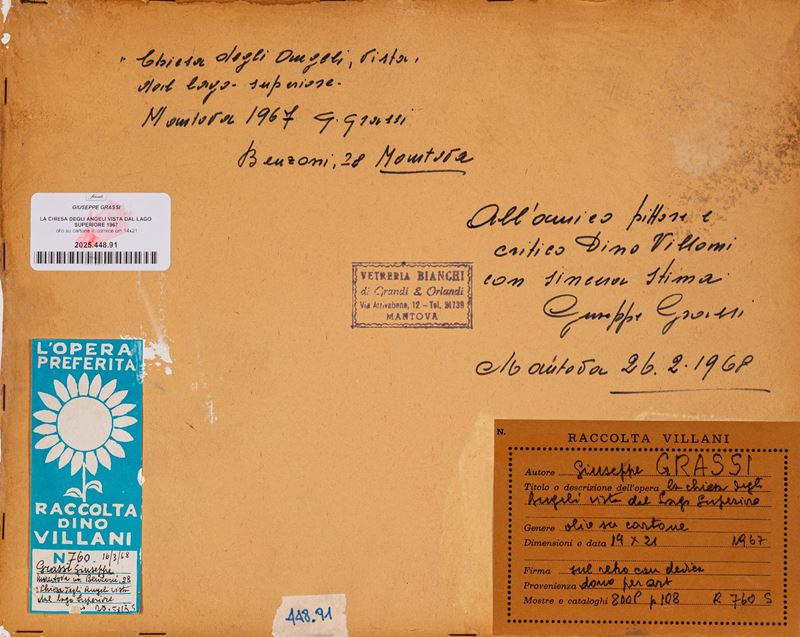 " Chiesa degli Angeli, vista,
dal lago superiore.
Mantova 1967 G. Grassi
Benzoni, 28 Mantova
All'amico pittore e
critico Dino Villani
con sincera stima
Giuseppe Grassi
Mantova 26.2.1968
GIUSEPPE GRASSI
LA CHIESA DEGLI ANGELI VISTA DAL LAGO
SUPERIORE 1967
olio su cartone in cornice cm 14x21
2025.448.91
VETRERIA BIANCHI
di Grandi & Orlandi
Via Arrivabene, 12 - Tel. 24739
MANTOVA
L'OPERA
PREFERITA
RACCOLTA
DINO
VILLANI
N 760. 16/3/68
Grassi Giuseppe
Mantova Benzoni, 28
Chiesa degli Angeli vista
dal lago Superiore
448.91
N.
RACCOLTA VILLANI
Autore Giuseppe GRASSI
Titolo o descrizione dell'opera la chiesa degli
Angeli vista dal Lago Superiore
Genere olio su cartone
Dimensioni e data 19 x 21 1967
Firma sul retro con dedica
Provenienza dono per art
Mostre e cataloghi 800P p 108 R 760 S